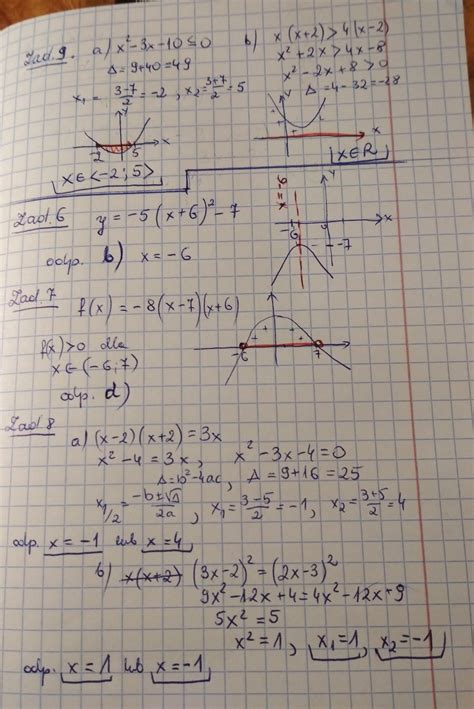 Zad.9. a) x²-3x-10≤0
Δ=9+40=49
x₁=(3-7)/2=-2, x₂=(3+7)/2=5
2 5 x
x∈<-2;5>
b) x(x+2)>4(x-2)
x²+2x>4x-8
x²-2x+8>0
Δ=4-32=-28
+ + x
x∈R
Zad.6 y=-5(x+6)²-7
odp. b) x=-6
x=-6 y x
-6 -7
Zad.7 f(x)=-8(x-7)(x+6)
f(x)>0 dla
x∈(-6;7)
odp. d)
+ + + +
-6 7
Zad 8
a) (x-2)(x+2)=3x
x²-4=3x, x²-3x-4=0
Δ=b²-4ac, Δ=9+16=25
x₁/₂=(-b±√Δ)/2a, x₁=(3-5)/2=-1, x₂=(3+5)/2=4
odp. x=-1 lub x=4
b) x(x+2) (3x-2)²=(2x-3)²
9x²-12x+4=4x²-12x+9
5x²=5
x²=1, x₁=1, x₂=-1
odp. x=1 lub x=-1